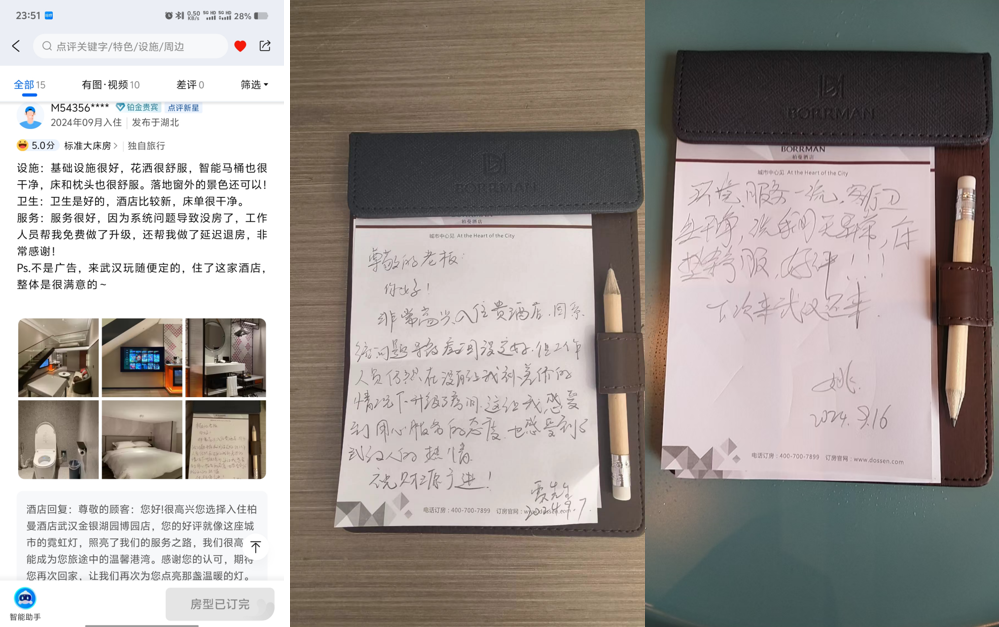 23:51
0.50 KB/s
5G
5G
28%
点评关键字/特色/设施/周边
全部 15
有图·视频 10
差评 0
筛选
M54356****
铂金贵宾
点评新星
2024年09月入住
发布于湖北
5.0分
标准大床房
独自旅行
设施：基础设施很好，花洒很舒服，智能马桶也很
干净，床和枕头也很舒服。落地窗外的景色还可以!
卫生：卫生是好的，酒店比较新，床单很干净。
服务：服务很好，因为系统问题导致没房了，工作
人员帮我免费做了升级，还帮我做了延迟退房，非
常感谢!
Ps.不是广告，来武汉玩随便定的，住了这家酒店，
整体是很满意的～
酒店回复：尊敬的顾客：您好!很高兴您选择入住柏
曼酒店武汉金银湖园博园店，您的好评就像这座城
市的霓虹灯，照亮了我们的服务之路，我们很高
能成为您旅途中的温馨港湾。感谢您的认可，期待
您再次回家，让我们再次为您点亮那盏温暖的灯。
智能助手
房型已订完
BORRMAN
柏曼酒店
城市中心见 At the Heart of the City
尊敬的老板：
你好！
非常高兴入住贵酒店，因系
统问题导致房间没定好，但工作
人员仍然在没有让我补差价的
情况下升级了房间，这让我感受
到用心服务的态度，也感受到了
武汉人的热情
祝财源广进！
贾先生
2024.9.7
电话订房：400-700-7899
订房官网：
BORRMAN
BORRMAN
柏曼酒店
城市中心见 At the Heart of the City
环境、服务一流，客厅卫
生干净，洗手间无异常，床
垫舒服，好评！！！
下次来武汉还来.
姚
2024.9.16
电话订房：400-700-7899
订房官网：www.dossen.com